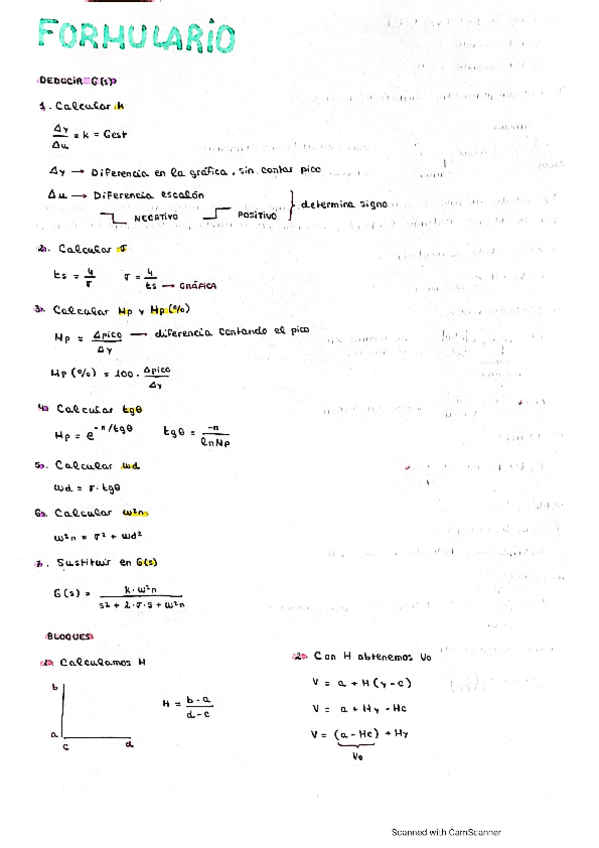 FORMULARIO
DEDUCIR G(s)
1. Calcular k
Δy/Δu = k = Gest
Δy → Diferencia en la gráfica, sin contar pico
Δu → Diferencia escalón
NEGATIVO POSITIVO } determina signo
2. Calcular σ
ts = 4/σ σ = 4/ts → GRÁFICA
3. Calcular Mp y Mp(%)
Mp = Δpico/Δy → diferencia contando el pico
Mp (%) = 100 · Δpico/Δy
4. Calcular tgθ
Mp = e^-π/tgθ tgθ = -π/lnMp
5. Calcular wd
wd = σ · tgθ
6. Calcular w²n
w²n = σ² + wd²
7. Sustituir en G(s)
G(s) = k·w²n/s2 + 2·σ·s + w²n
BLOQUES
1. Calculamos H
b
a
c d
H = b-a/d-c
2. Con H obtenemos Vo
V = a + H(y-c)
V = a + Hy - Hc
V = (a - Hc) + Hy
Vo
Scanned with CamScanner